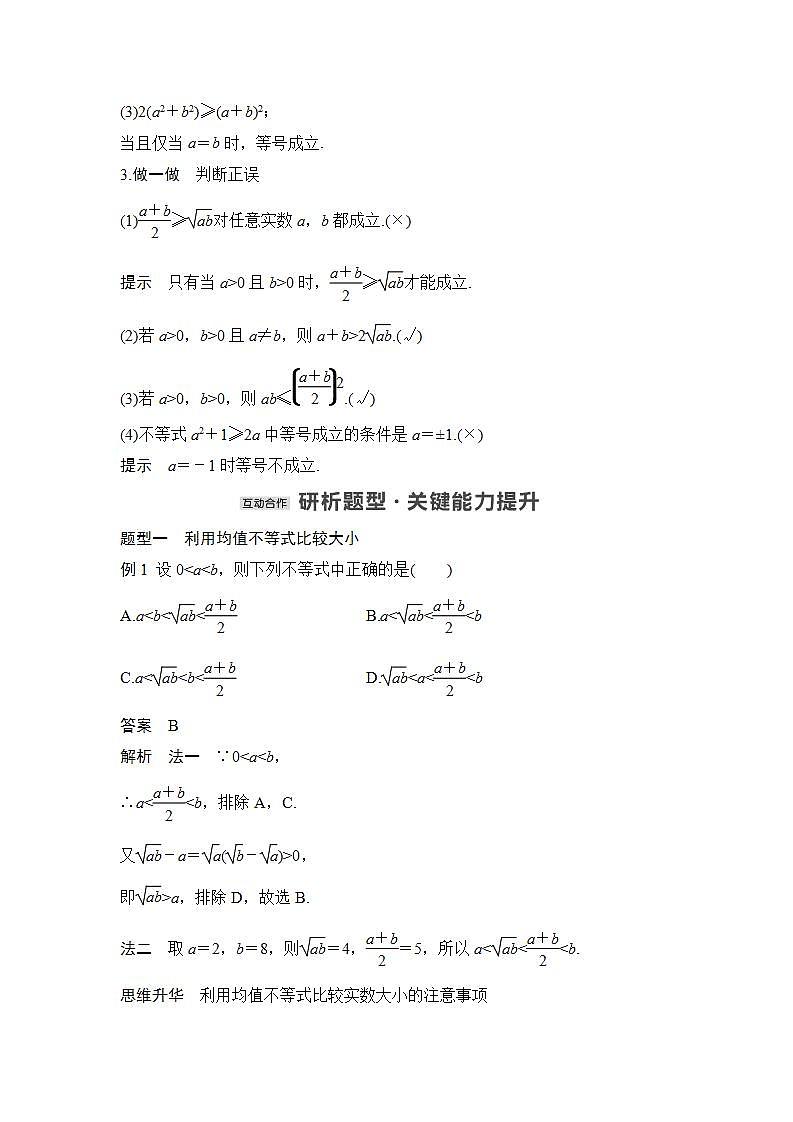 (3)2(a²+b²)≥(a+b)²;
当且仅当 a=b 时，等号成立.
3.做一做　判断正误
(1)\frac{a+b}{2}≥\sqrt{ab}对任意实数 a，b 都成立.(×)
提示　只有当 a>0 且 b>0 时，\frac{a+b}{2}≥\sqrt{ab}才能成立.
(2)若 a>0，b>0 且 a≠b，则 a+b>2\sqrt{ab}.(√)
(3)若 a>0，b>0，则 ab≤(\frac{a+b}{2})².(√)
(4)不等式 a²+1≥2a 中等号成立的条件是 a=±1.(×)
提示　a=-1 时等号不成立.
互动合作 研析题型·关键能力提升
题型一　利用均值不等式比较大小
例 1 设 0<a<b，则下列不等式中正确的是(　　)
A.a<b<\sqrt{ab}<\frac{a+b}{2}　B.a<\sqrt{ab}<\frac{a+b}{2}<b
C.a<\sqrt{ab}<b<\frac{a+b}{2}　D.\sqrt{ab}<a<\frac{a+b}{2}<b
答案　B
解析　法一　∵0<a<b，
∴a<\frac{a+b}{2}<b，排除 A，C.
又\sqrt{ab}-a=\sqrt{a}(\sqrt{b}-\sqrt{a})>0，
即\sqrt{ab}>a，排除 D，故选 B.
法二　取 a=2，b=8，则\sqrt{ab}=4，\frac{a+b}{2}=5，所以 a<\sqrt{ab}<\frac{a+b}{2}<b.
思维升华　利用均值不等式比较实数大小的注意事项